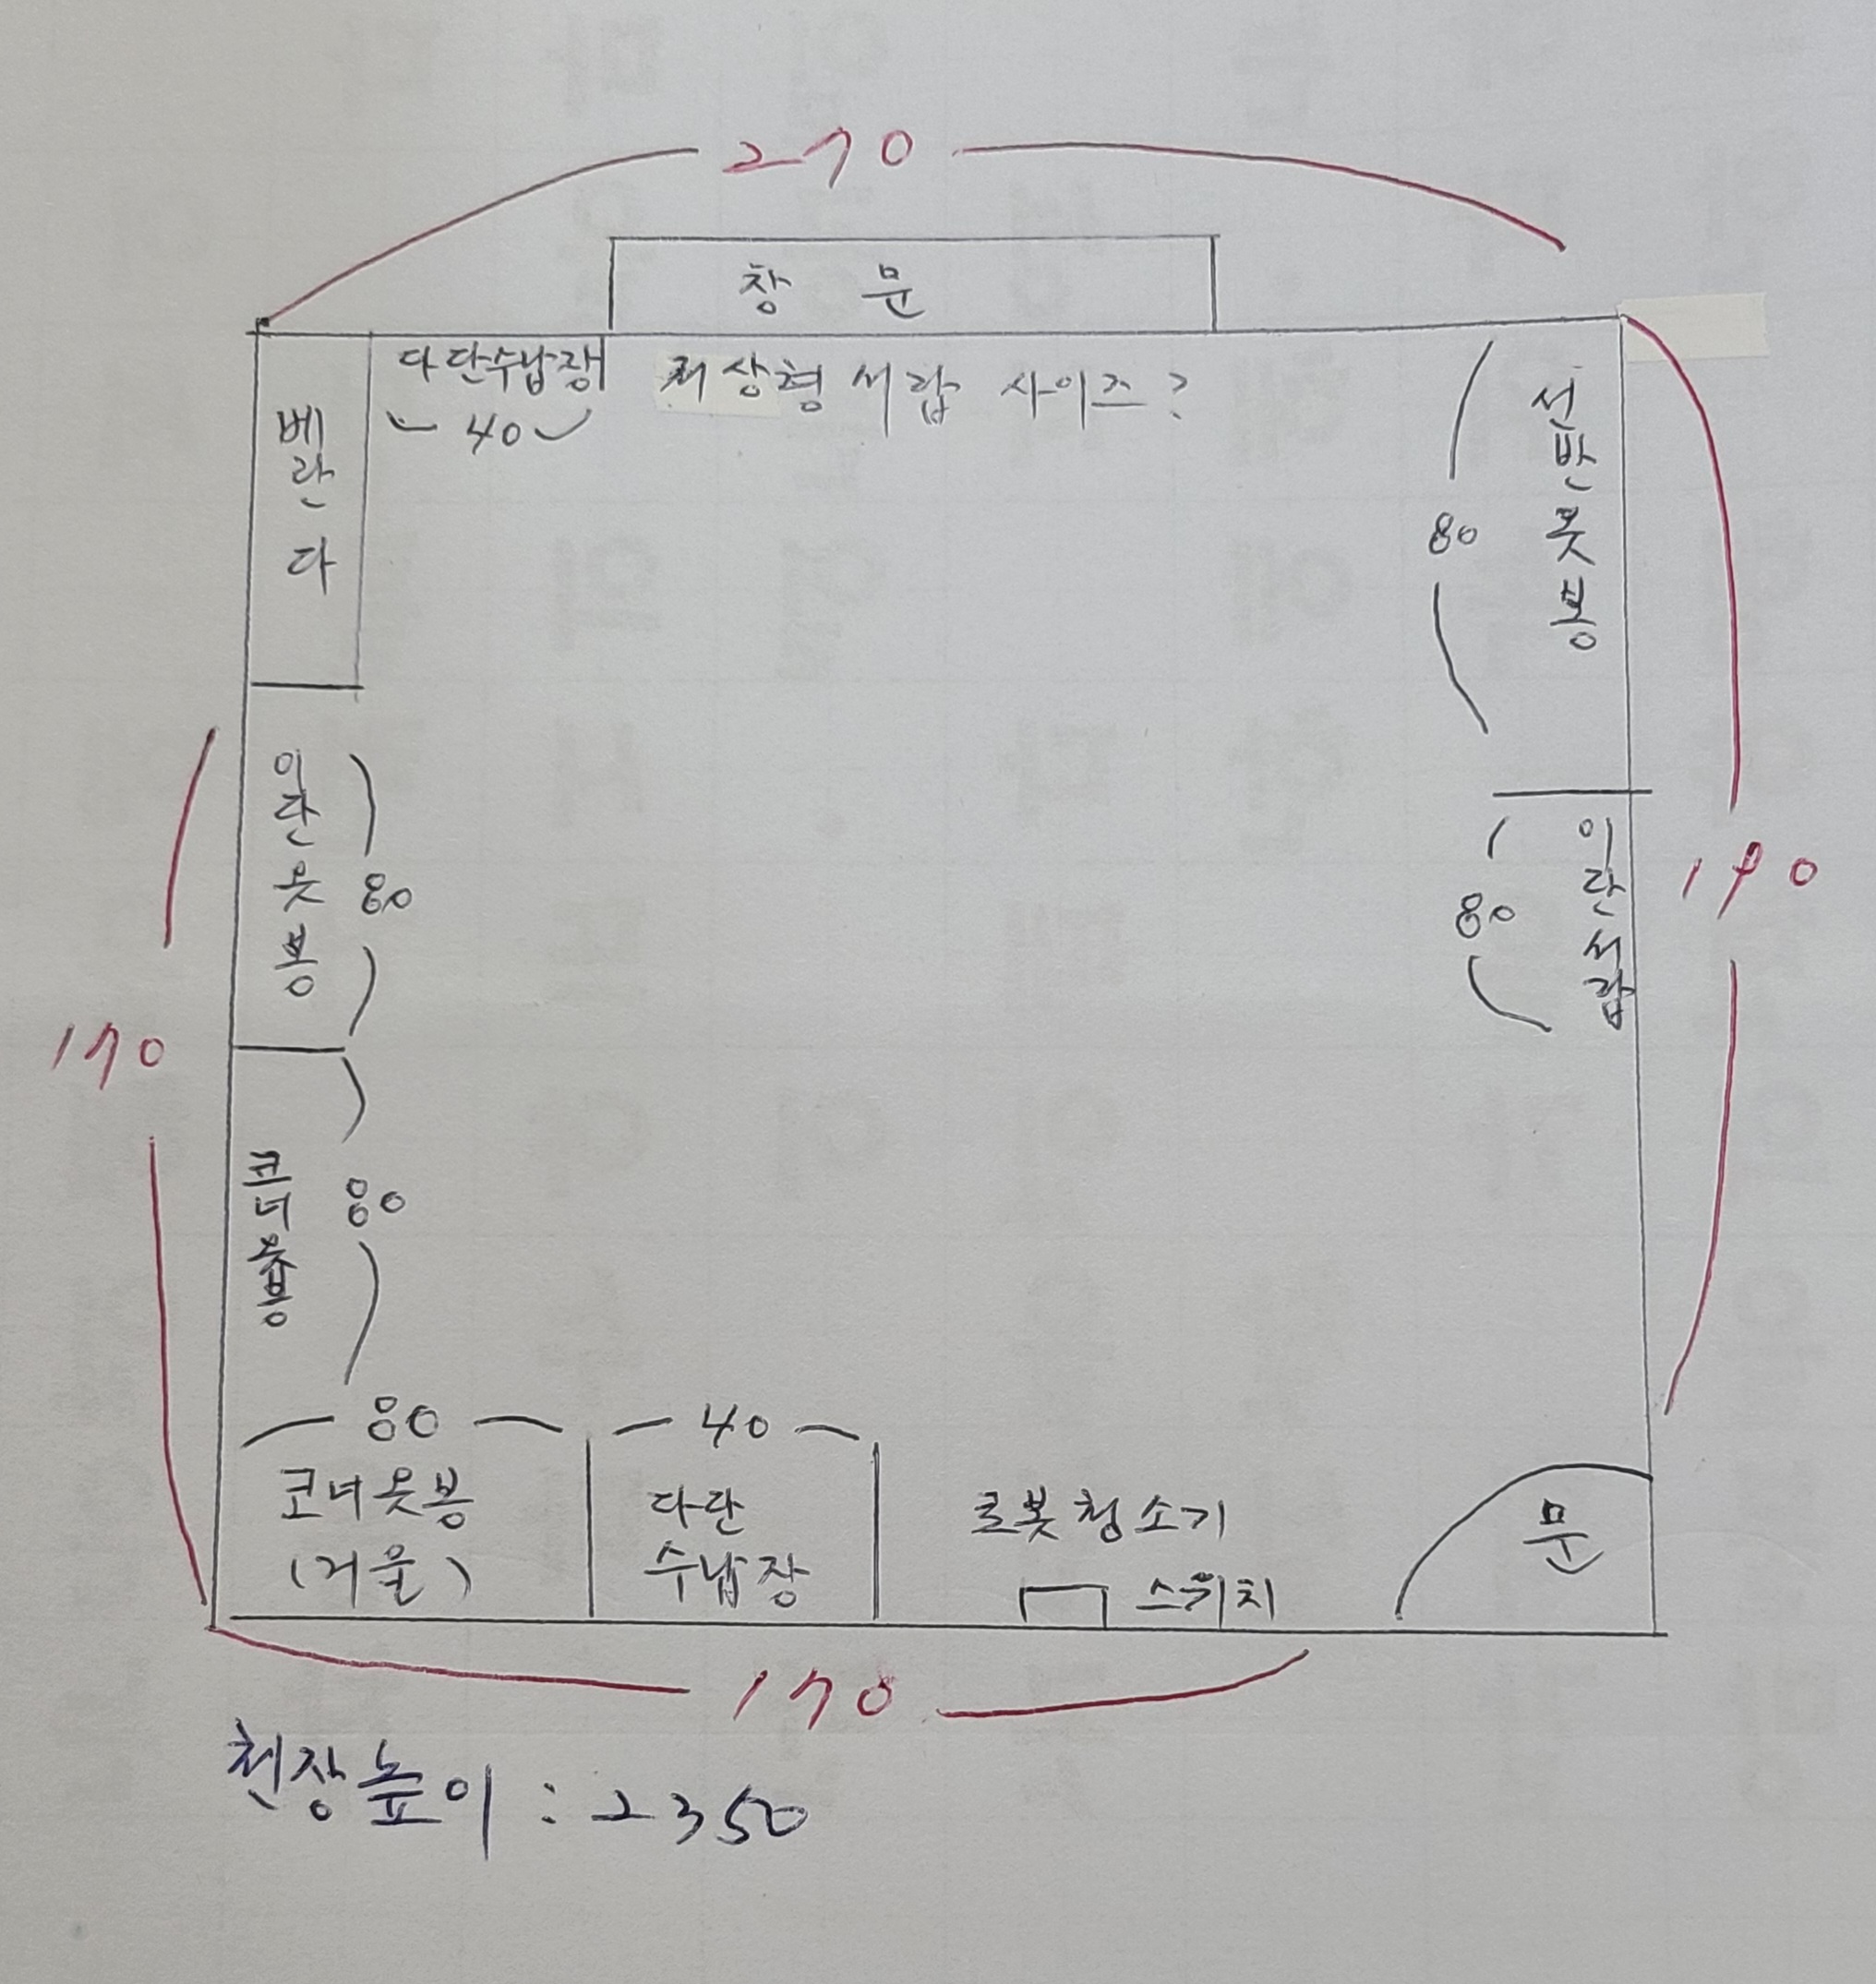 270
창문
다단수납쟁
40
최상형 서랍 사이즈?
베란다
선반옷봉
80
이단옷봉
80
이단서랍
80
190
170
코너옷봉
80
80
코너옷봉
(거울)
40
다단
수납장
로봇청소기
스위치
문
170
천장높이 : 2350